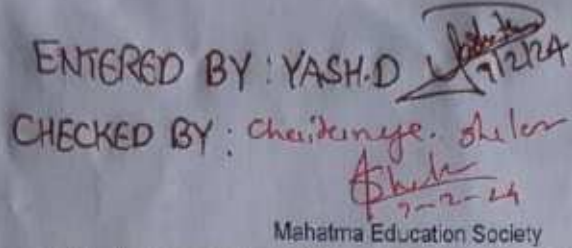 ENTERED BY : YASH.D 7/2/24
CHECKED BY : Chaitanya. Shelar
7-2-24
Mahatma Education Society